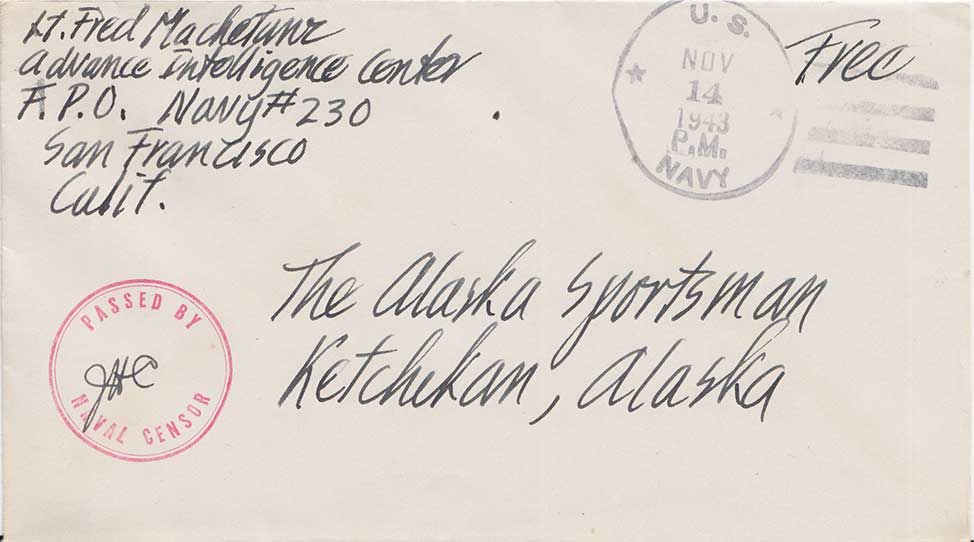 Lt. Fred Machetanz
Advance Intelligence Center
F.P.O. Navy #230
San Francisco
Calif.
U. S.
NOV
14
1943
P.M.
NAVY
Free
PASSED BY
JHC
NAVAL CENSOR
The Alaska Sportsman
Ketchikan, Alaska